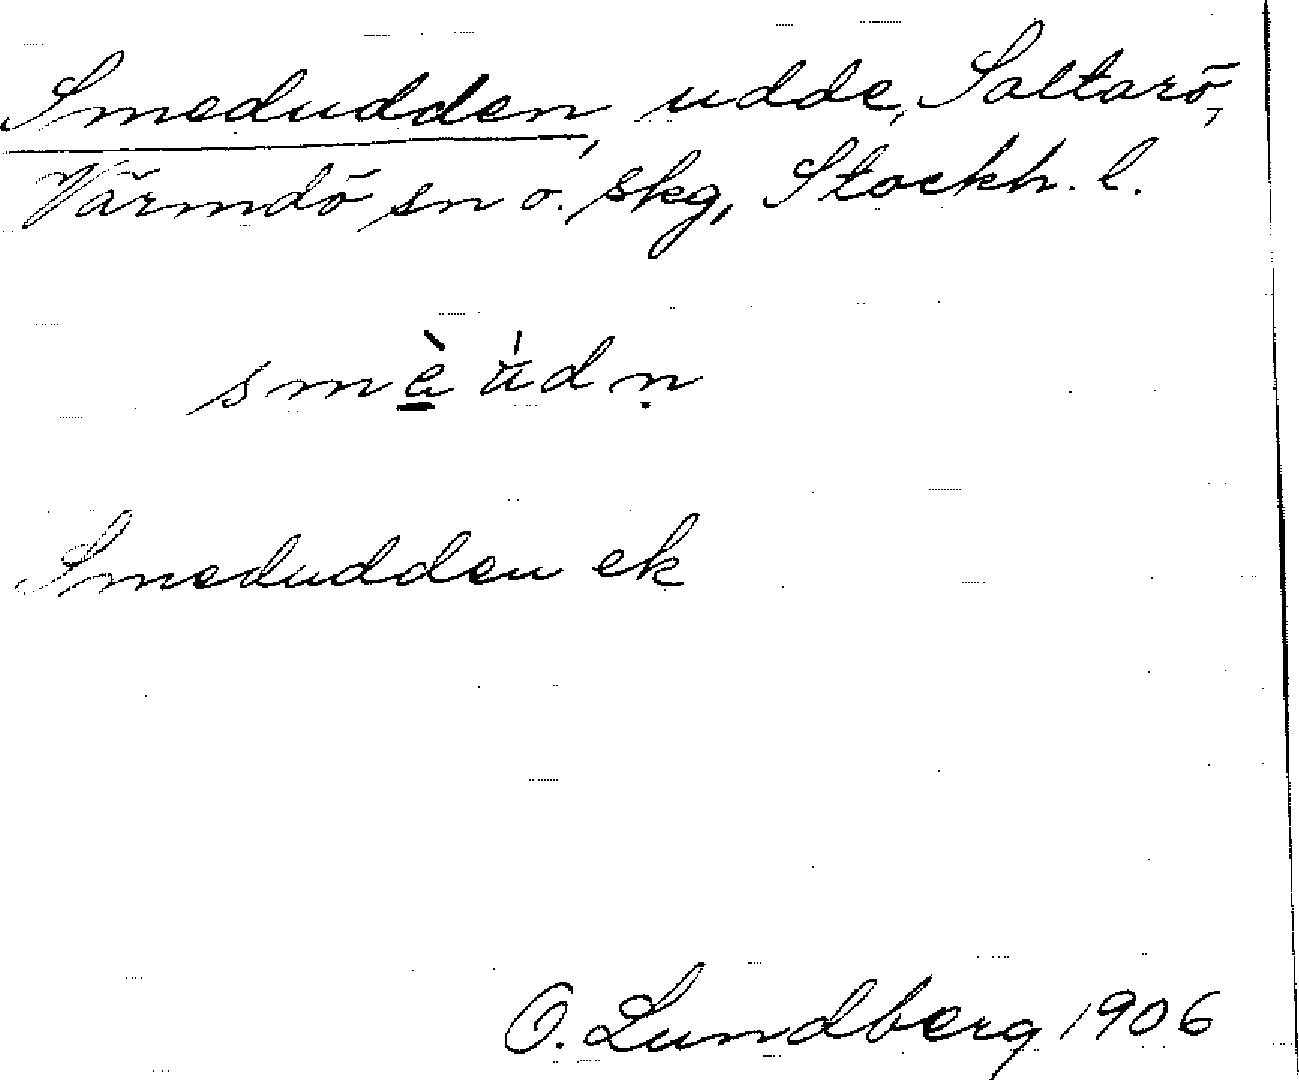 Smedudden, udde, Saltarö,
Värmdö sn o. skg, Stockh. l.
smè̱ údṇ
Smedudden ek
O. Lundberg 1906